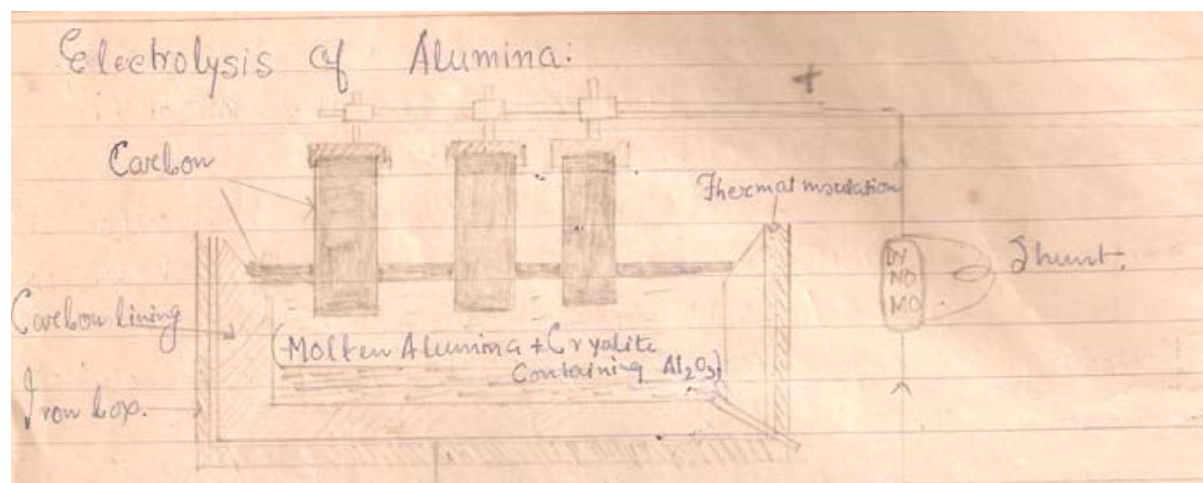 Electrolysis of Alumina:
+
Carbon
Thermal insulation
DY
NO
MO
Shunt.
Carbon lining
(Molten Alumina + Cryalite
Containing Al₂O₃)
Iron box.